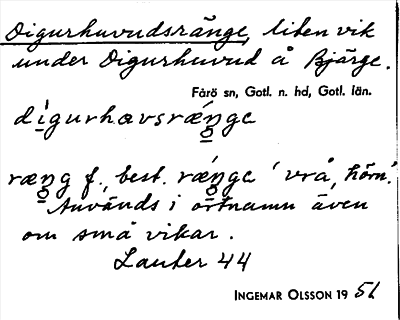 Digurhuvudsränge, liten vik
under Digurhuvud å Bjärge.
Fårö sn, Gotl. n. hd, Gotl. län.
dìgurhavsrǽnga
ræng f., best. rǽnga 'vrå, hörn'.
Används i ortnamn även
om små vikar.
Lauter 44
INGEMAR OLSSON 19 51